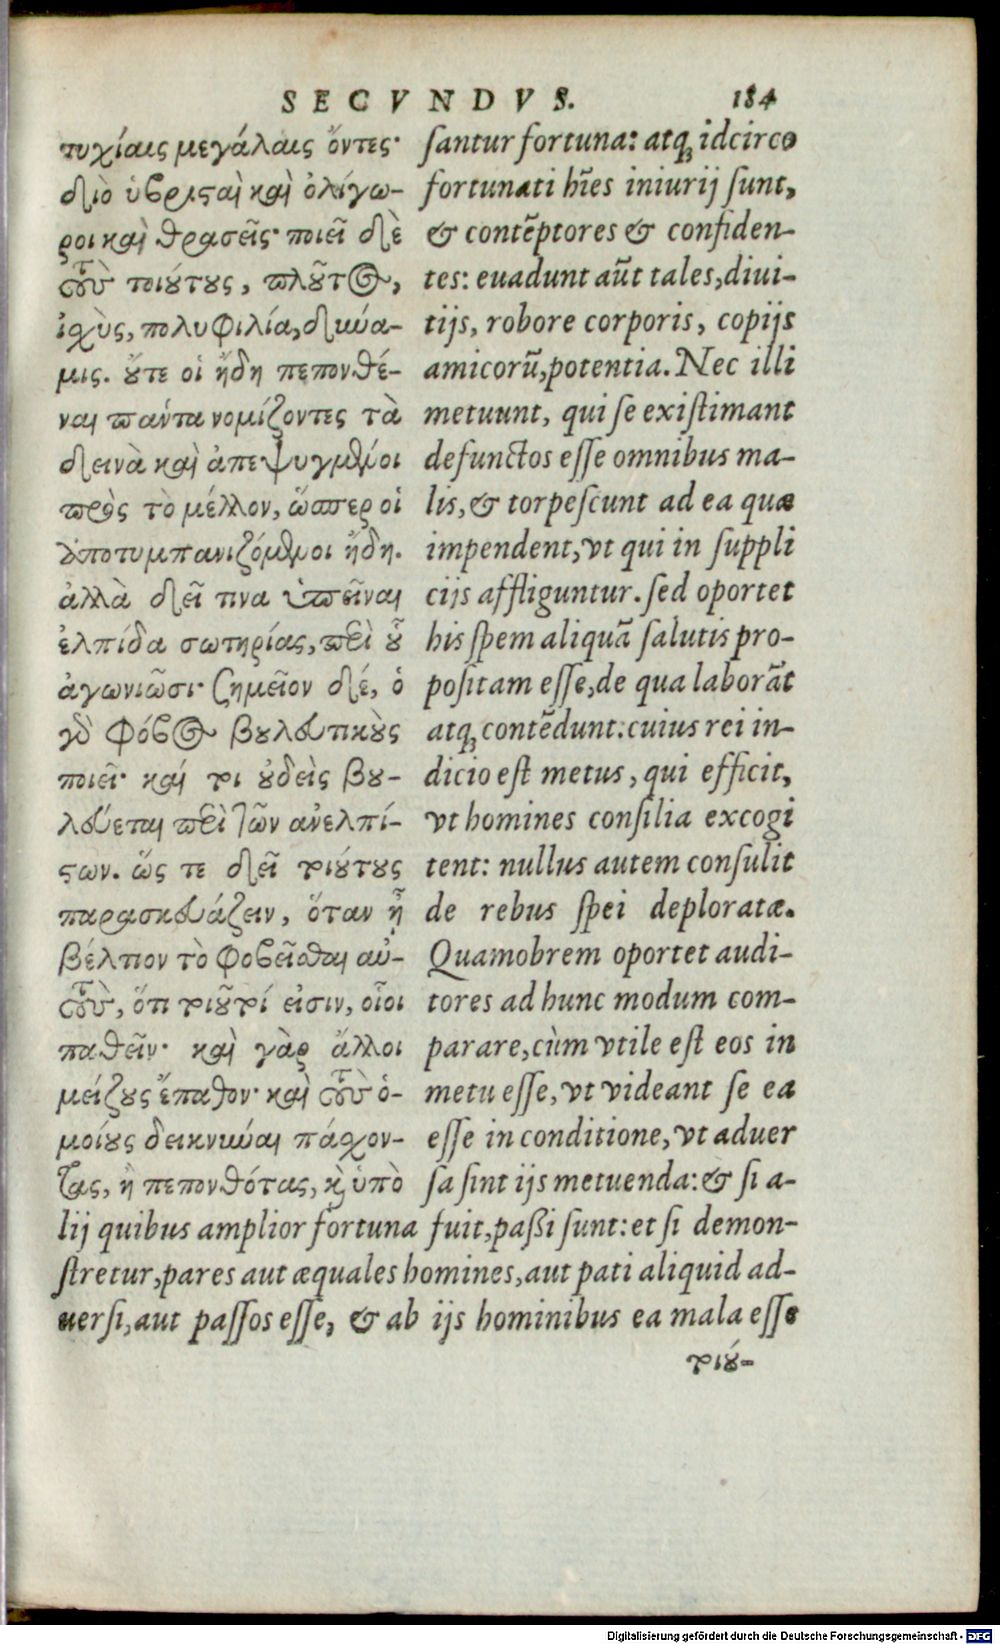 SECVNDVS. 184
τυχίαις μεγάλαις ὄντες·
διὸ ὑβρισταὶ καὶ ὀλίγω-
ροι καὶ θρασεῖς· ποιεῖ δὲ
τοὺς τοιούτους, πλοῦτος,
ἰσχὺς, πολυφιλία, δύνα-
μις. οὔτε οἱ ἤδη πεπονθέ-
ναι πάντα νομίζοντες τὰ
δεινὰ καὶ ἀπεψυγμένοι
πρὸς τὸ μέλλον, ὥσπερ οἱ
ἀποτυμπανιζόμενοι ἤδη.
ἀλλὰ δεῖ τινα ὑπεῖναι
ἐλπίδα σωτηρίας, περὶ οὗ
ἀγωνιῶσι· σημεῖον δέ, ὁ
γὰρ φόβος βουλευτικοὺς
ποιεῖ· καί τοι οὐδεὶς βου-
λεύεται περὶ τῶν ἀνελπί-
στων. ὥς τε δεῖ τοιούτους
παρασκευάζειν, ὅταν ᾖ
βέλτιον τὸ φοβεῖσθαι αὐ-
τοὺς, ὅτι τοιοῦτοί εἰσιν, οἷοι
παθεῖν· καὶ γὰρ ἄλλοι
μείζους ἔπαθον· καὶ τοὺς ὁ-
μοίους δεικνύναι πάσχον-
τας, ἢ πεπονθότας, καὶ ὑπὸ
santur fortuna: atq; idcirco
fortunati hoĩes iniurij sunt,
& contẽptores & confiden-
tes: euadunt aũt tales, diui-
tijs, robore corporis, copijs
amicorũ, potentia. Nec illi
metuunt, qui se existimant
defunctos esse omnibus ma-
lis, & torpescunt ad ea quæ
impendent, vt qui in suppli
cijs affliguntur. sed oportet
his spem aliquã salutis pro-
positam esse, de qua laborãt
atq; contẽdunt: cuius rei in-
dicio est metus, qui efficit,
vt homines consilia excogi
tent: nullus autem consulit
de rebus spei deploratæ.
Quamobrem oportet audi-
tores ad hunc modum com-
parare, cùm vtile est eos in
metu esse, vt videant se ea
esse in conditione, vt aduer
sa sint ijs metuenda: & si a-
lij quibus amplior fortuna fuit, passi sunt: et si demon-
stretur, pares aut æquales homines, aut pati aliquid ad-
uersi, aut passos esse, & ab ijs hominibus ea mala esse
τοιού-
Digitalisierung gefördert durch die Deutsche Forschungsgemeinschaft - DFG